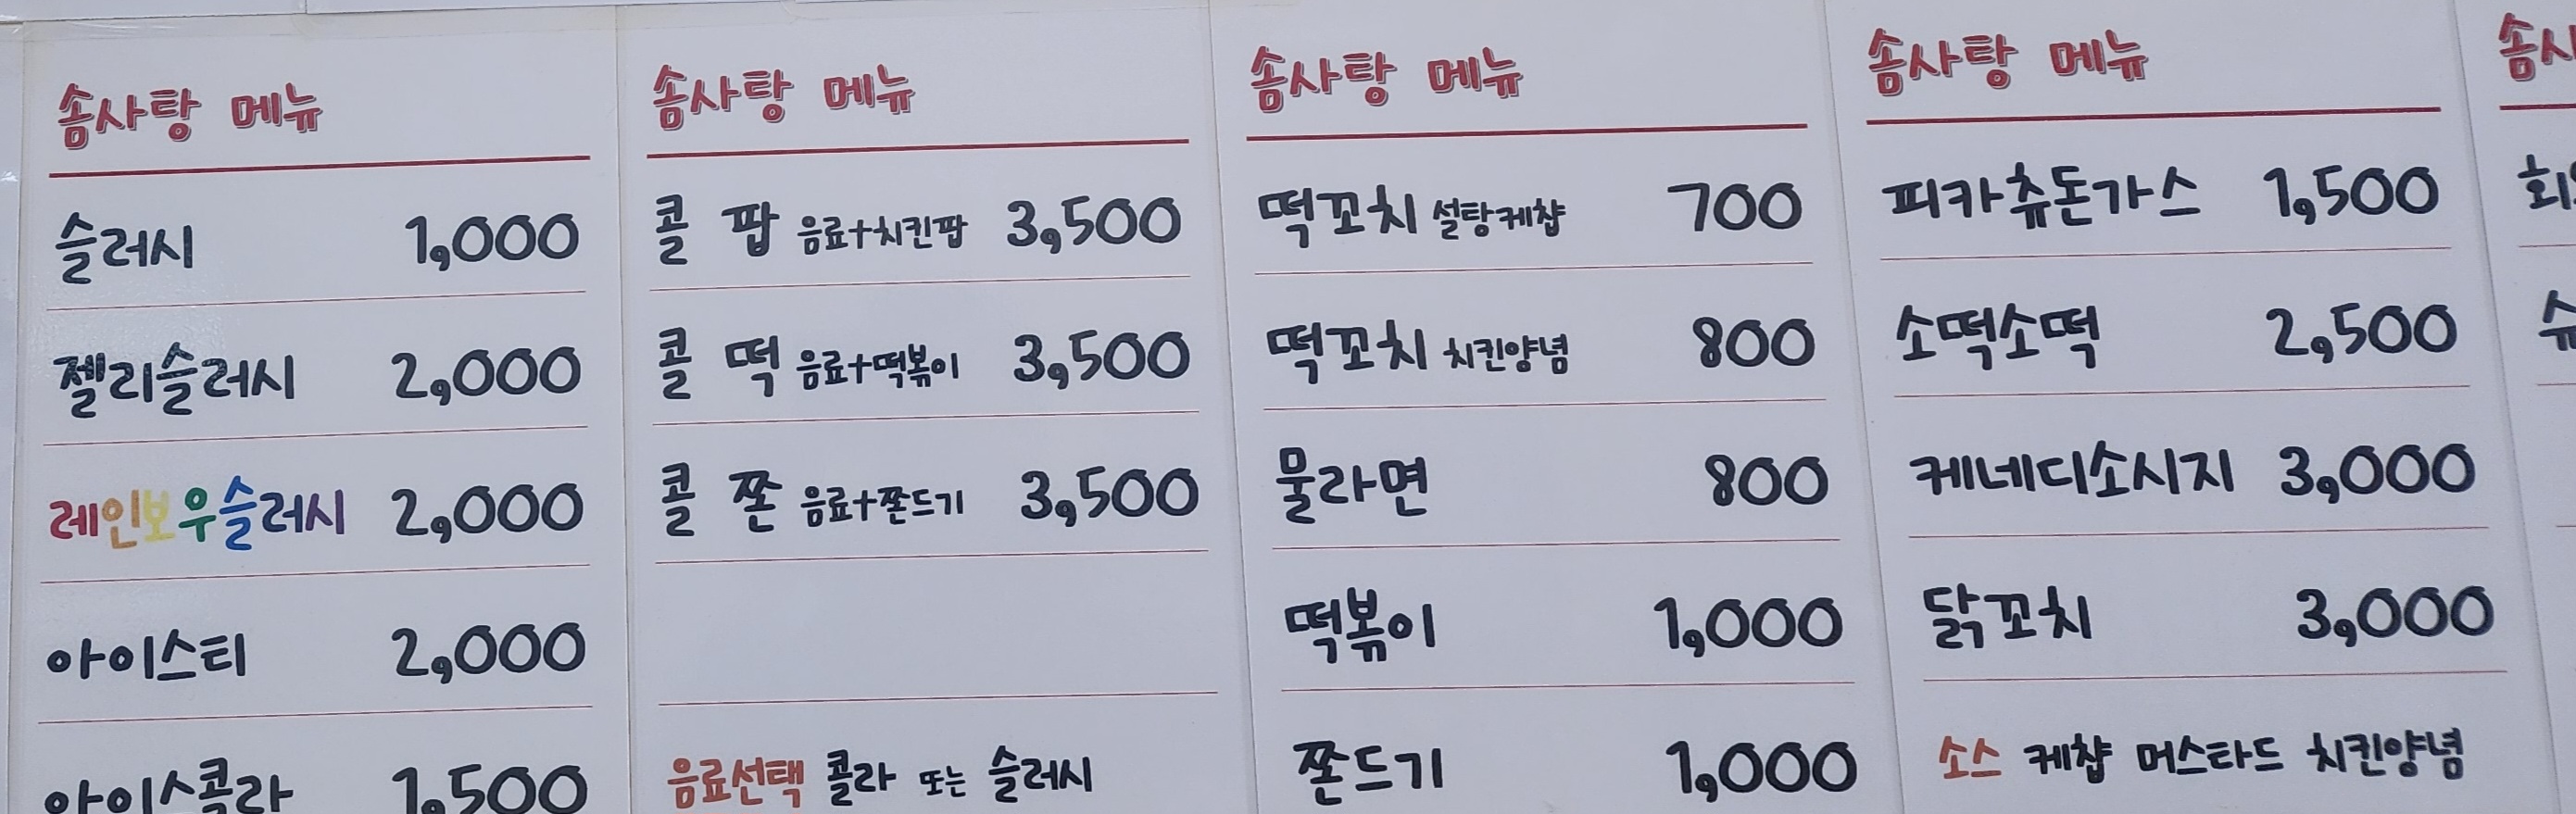 솜사탕 메뉴
슬러시 1,000
젤리슬러시 2,000
레인보우슬러시 2,000
아이스티 2,000
아이스콜라 1,500
솜사탕 메뉴
콜 팝 음료+치킨팝 3,500
콜 떡 음료+떡볶이 3,500
콜 쫀 음료+쫀드기 3,500
음료선택 콜라 또는 슬러시
솜사탕 메뉴
떡꼬치 설탕케챱 700
떡꼬치 치킨양념 800
물라면 800
떡볶이 1,000
쫀드기 1,000
솜사탕 메뉴
피카츄돈가스 1,500
소떡소떡 2,500
케네디소시지 3,000
닭꼬치 3,000
소스 케챱 머스타드 치킨양념